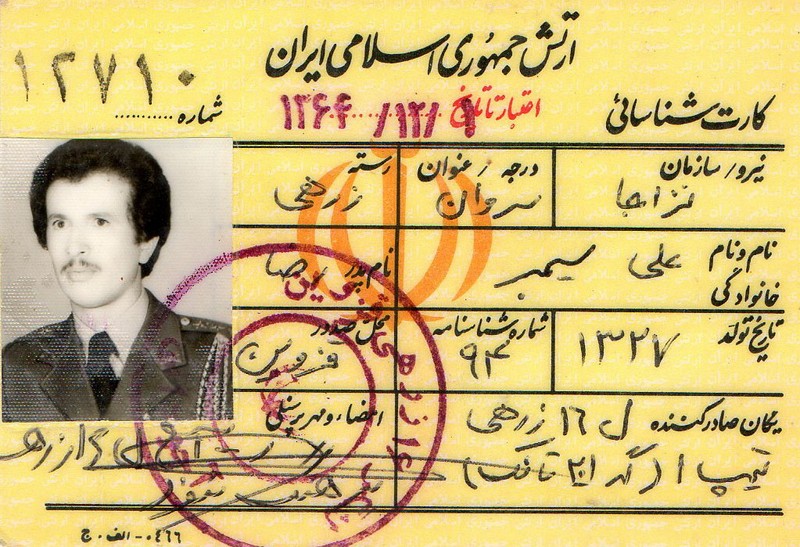 ارتش جمهوری اسلامی ایران
۱۲۷۱۰
شماره ..........
کارت شناسائی
اعتبار تا تاریخ ۱۳۶۴/۱۲/۹
نیرو/سازمان نزاجا
درجه/عنوان سروان
رسته زرهی
نام و نام خانوادگی علی سیمبر
نام پدر رضا
تاریخ تولد ۱۳۲۷
شماره شناسنامه ۹۴
محل صدور فردوس
یگان صادرکننده ل ۱۶ زرهی
تیپ ۱ (گد ۲۰۱ تانک)
امضاء و مهر پرسنلی
۰۴۶۶-الف-ج